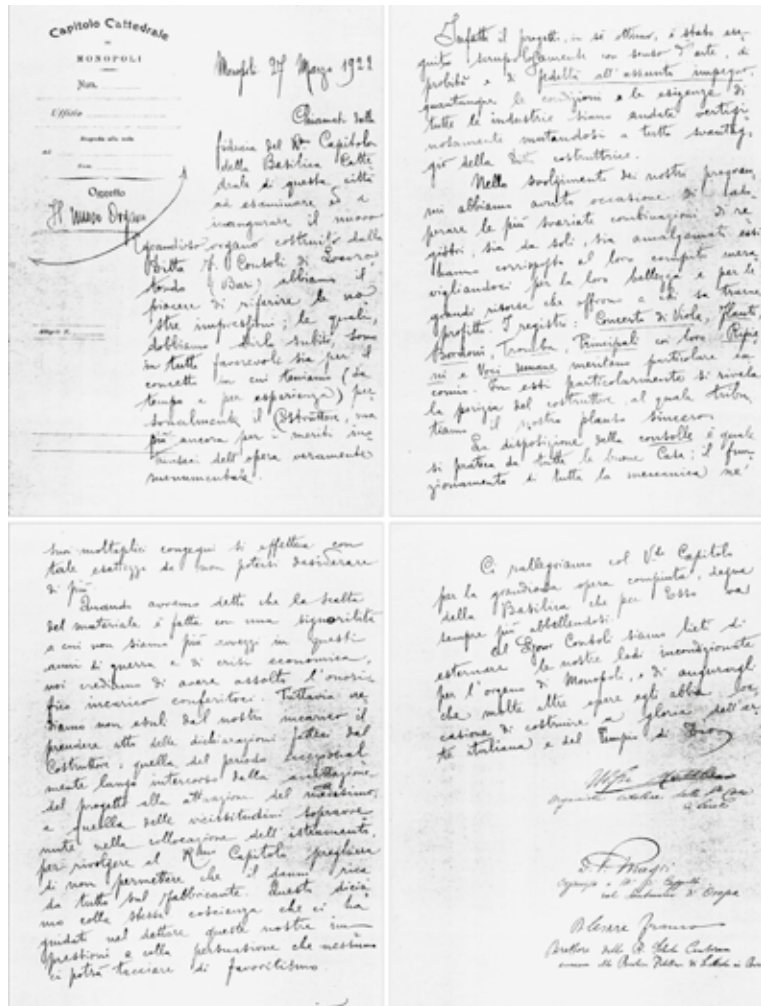 Capitolo Cattedrale
DI
MONOPOLI
Num.
Ufficio
Risposta alla nota
del
Num.
Oggetto
Il nuovo Organo
Allegati N.
Monopoli 27 Marzo 1922
Chiamati dalla
fiducia del Rmo Capitolo
della Basilica Catte-
drale di questa città
ad esaminare ed a
inaugurare il nuovo
grandioso organo costruito dalla
Ditta F. Consoli di Locoro-
tondo (Bar) abbiamo il
piacere di riferire le no-
stre impressioni; le quali,
dobbiamo dirlo subito, sono
in tutto favorevoli sia per il
concetto in cui teniamo (da
tempo e per esperienza) per-
sonalmente il Costruttore, ma
più ancora per i meriti in-
trinseci dell'opera veramente
monumentale.
Infatti il progetto, in sè ottimo, è stato ese-
guito scrupolosamente con senso d'arte, di
probità e di fedeltà all'assunto impegno,
quantunque le condizioni e le esigenze di
tutte le industrie siano andate vertigi-
nosamente mutandosi a tutto svantag-
gio della Ditta costruttrice.
Nello svolgimento dei nostri program-
mi abbiamo avuto occasione di ado-
perare le più svariate combinazioni di re-
gistri, sia da soli, sia amalgamati; essi
hanno corrisposto al loro compito mera-
vigliandoci per la loro bellezza e per le
grandi risorse che offrono a chi sa trarne
profitto. I registri: Concerto di Viole, Flauti,
Bordoni, Tromba, Principali coi loro Ripie-
ni e Voci umane meritano particolare en-
comio. In essi particolarmente si rivela
la perizia del costruttore, al quale tribu-
tiamo il nostro plauso sincero.
La disposizione della consolle è quale
si pratica da tutte le buone Case; il fun-
zionamento di tutta la meccanica nei
suoi molteplici congegni si effettua con
tale esattezza da non potersi desiderare
di più.
Quando avremo detto che la scelta
del materiale è fatta con una signorilità
a cui non siamo più avvezzi in questi
anni di guerra e di crisi economica,
noi crediamo di avere assolto l'onori-
fico incarico conferitoci. Tuttavia cre-
diamo non esuli dal nostro incarico il
prendere atto delle dichiarazioni fatteci dal
Costruttore: quella del periodo eccezional-
mente lungo intercorso dalla accettazione
del progetto alla attuazione del medesimo,
e quella delle vicissitudini sopravve-
nute nella collocazione dell'istrumento,
per rivolgere al Rmo Capitolo preghiera
di non permettere che il danno rica-
da tutto sul fabbricante. Questo dicia-
mo colla stessa coscienza che ci ha
guidati nel dettare queste nostre im-
pressioni e colla persuasione che nessuno
ci potrà tacciare di favoritismo.
Ci rallegriamo col Vdo Capitolo
per la grandiosa opera compiuta, degna
della Basilica che per Esso va
sempre più abbellendosi.
Al Signor Consoli siamo lieti di
esternare le nostre lodi incondizionate
per l'organo di Monopoli, e di augurargli
che molte altre opere egli abbia oc-
casione di costruire a gloria dell'ar-
te italiana e del Tempio di Dio
Organista
D. F. Magri
Cesare Franco
Direttore della